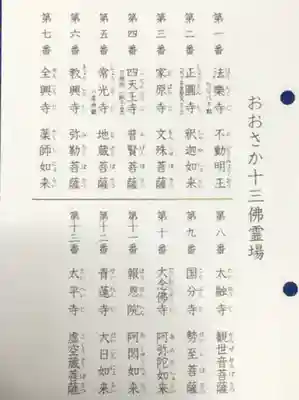 おおさか十三佛霊場
第一番 法樂寺 不動明王
第二番 正圓寺 釈迦如来
第三番 家原寺 文殊菩薩
第四番 四天王寺 普賢菩薩
第五番 常光寺 地蔵菩薩
第六番 教興寺 弥勒菩薩
第七番 全興寺 薬師如来
第八番 太融寺 観世音菩薩
第九番 国分寺 勢至菩薩
第十番 大念佛寺 阿弥陀如来
第十一番 報恩院 阿閦如来
第十二番 青蓮寺 大日如来
第十三番 太平寺 虚空蔵菩薩